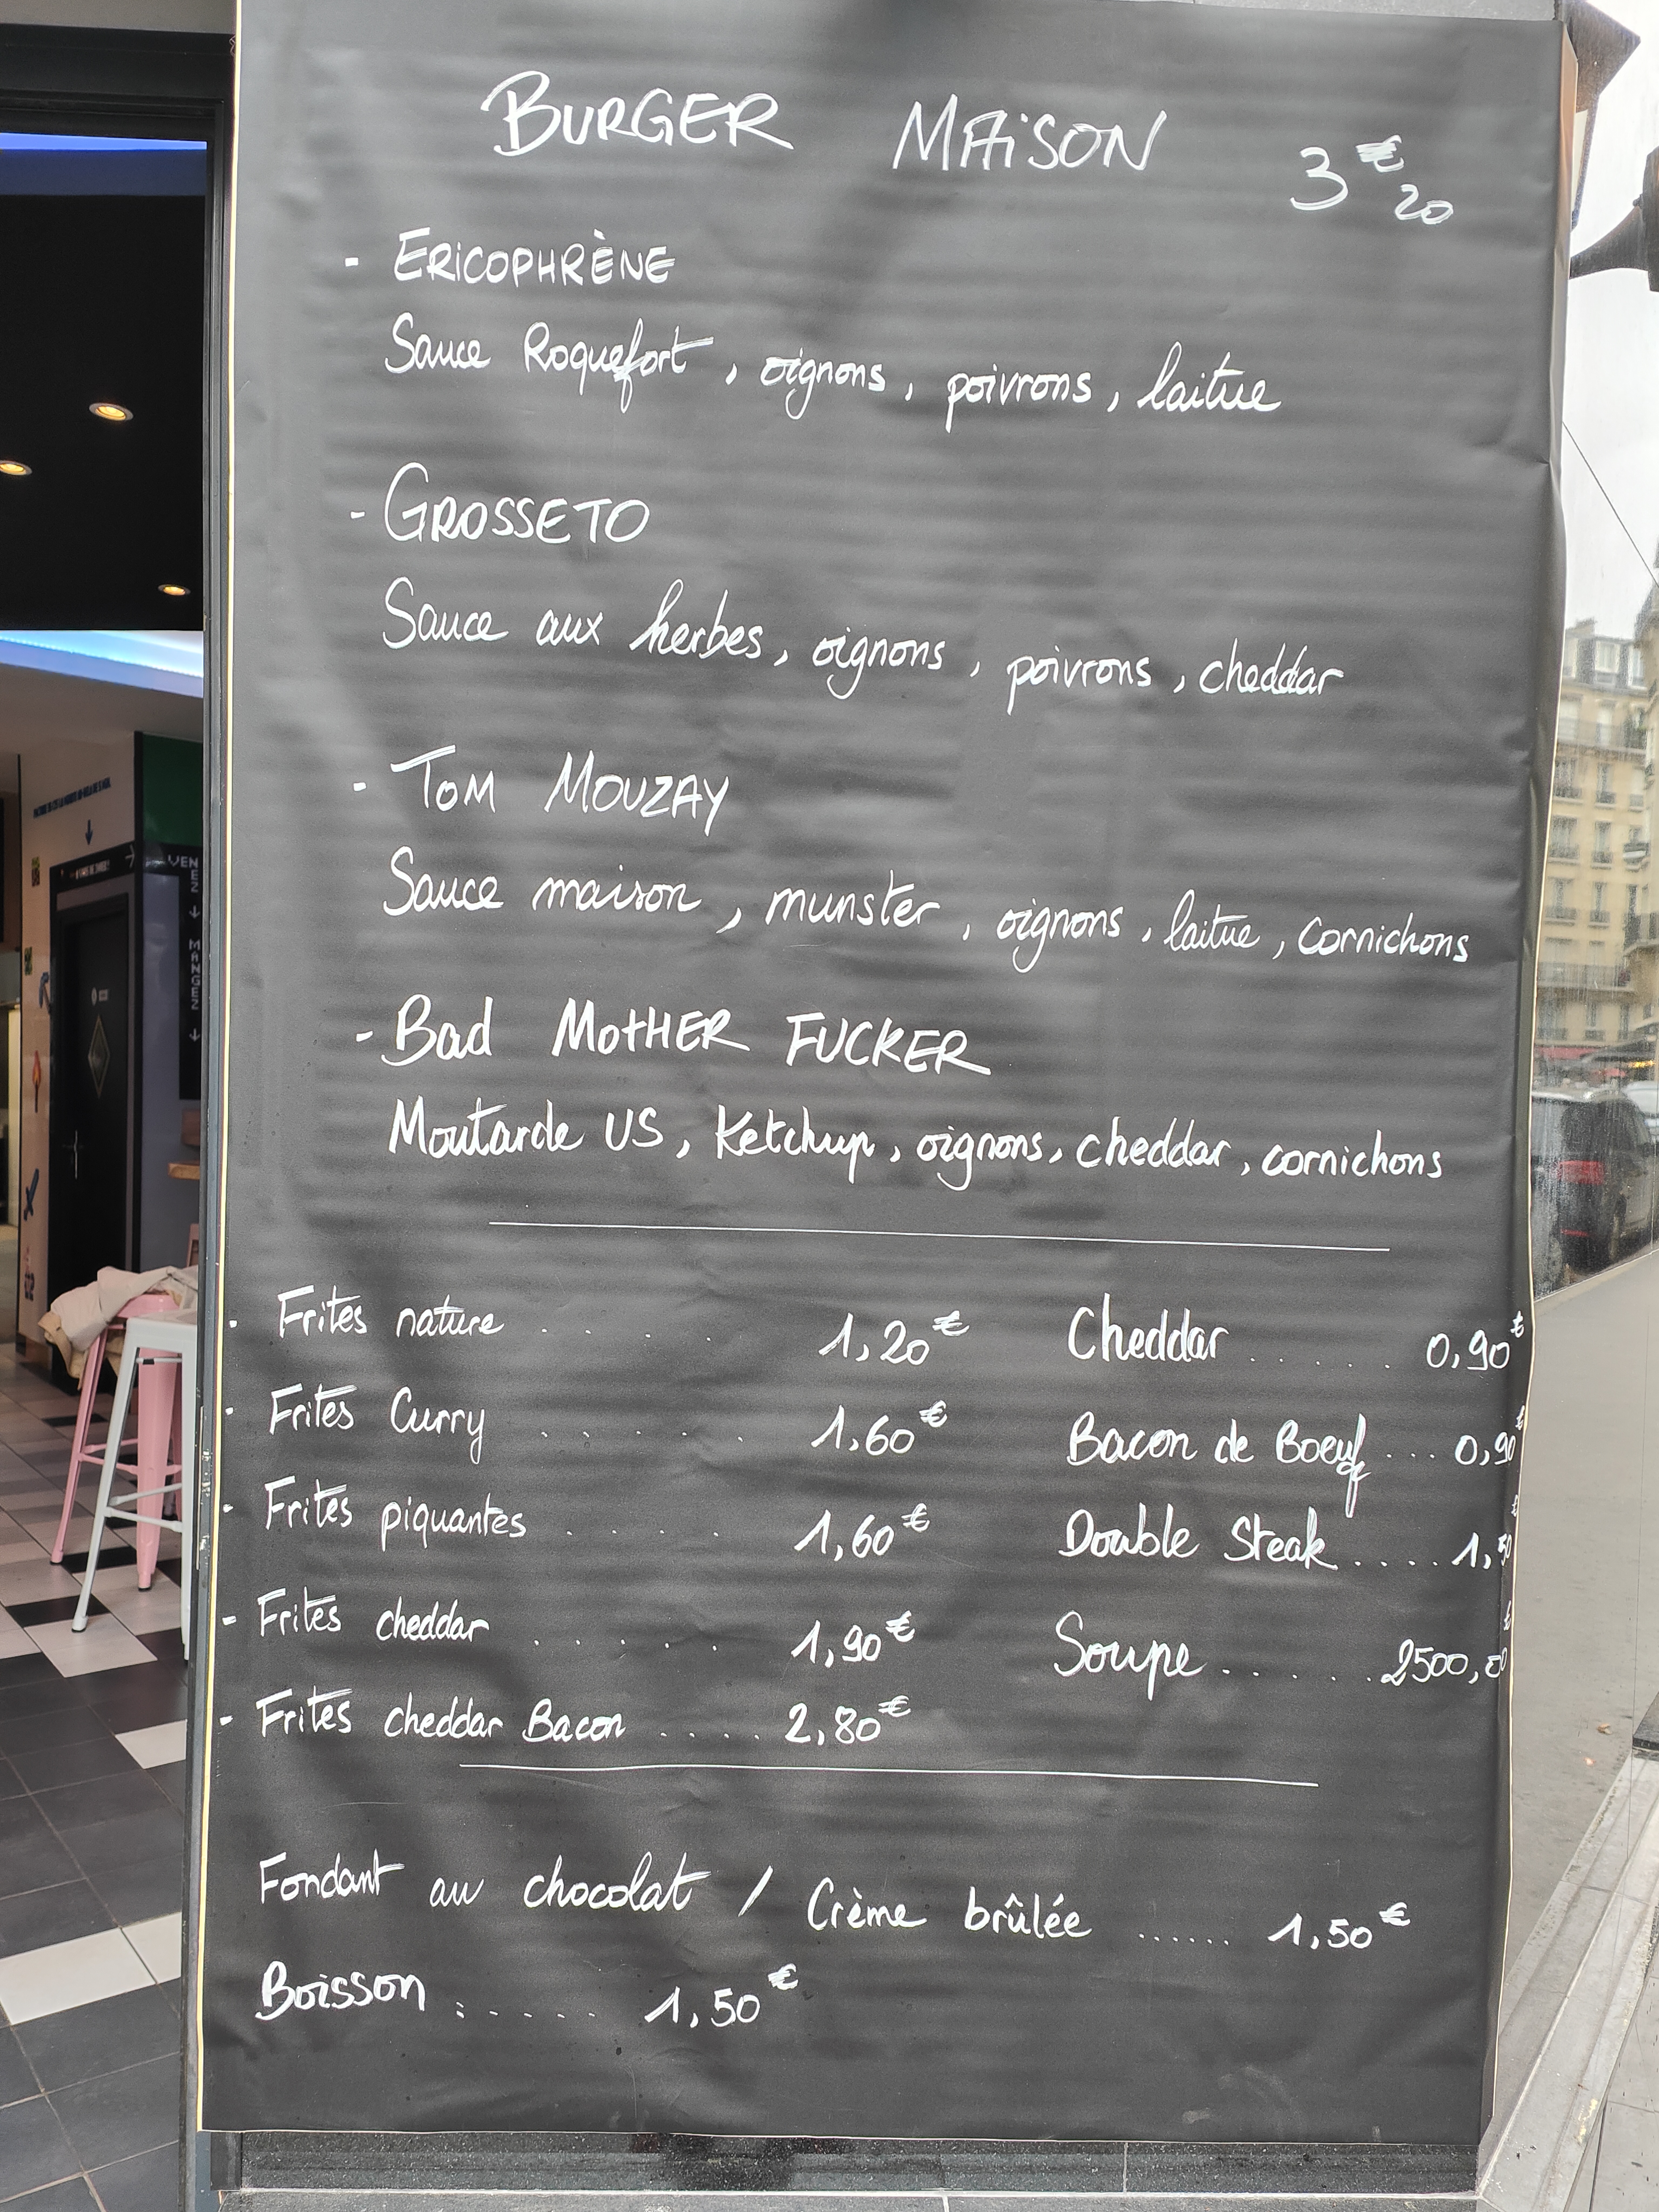 BURGER MAiSON 3€20
- ERiCOPHRÈNE
Sauce Roquefort, oignons, poivrons, laitue
- GROSSETO
Sauce aux herbes, oignons, poivrons, cheddar
- TOM MOUZAY
Sauce maison, munster, oignons, laitue, cornichons
- Bad MOtHER FUCKER
Moutarde US, Ketchup, oignons, cheddar, cornichons
- Frites nature ..... 1,20€
- Frites Curry ...... 1,60€
- Frites piquantes ..... 1,60€
- Frites cheddar ...... 1,90€
- Frites cheddar Bacon ..... 2,80€
Cheddar ...... 0,90€
Bacon de Boeuf ... 0,90€
Double Steak .... 1,50€
Soupe ...... 2500,00€
Fondant au chocolat / Crème brûlée ...... 1,50€
Boisson ...... 1,50€
VENEZ
↓
MANGEZ
↓